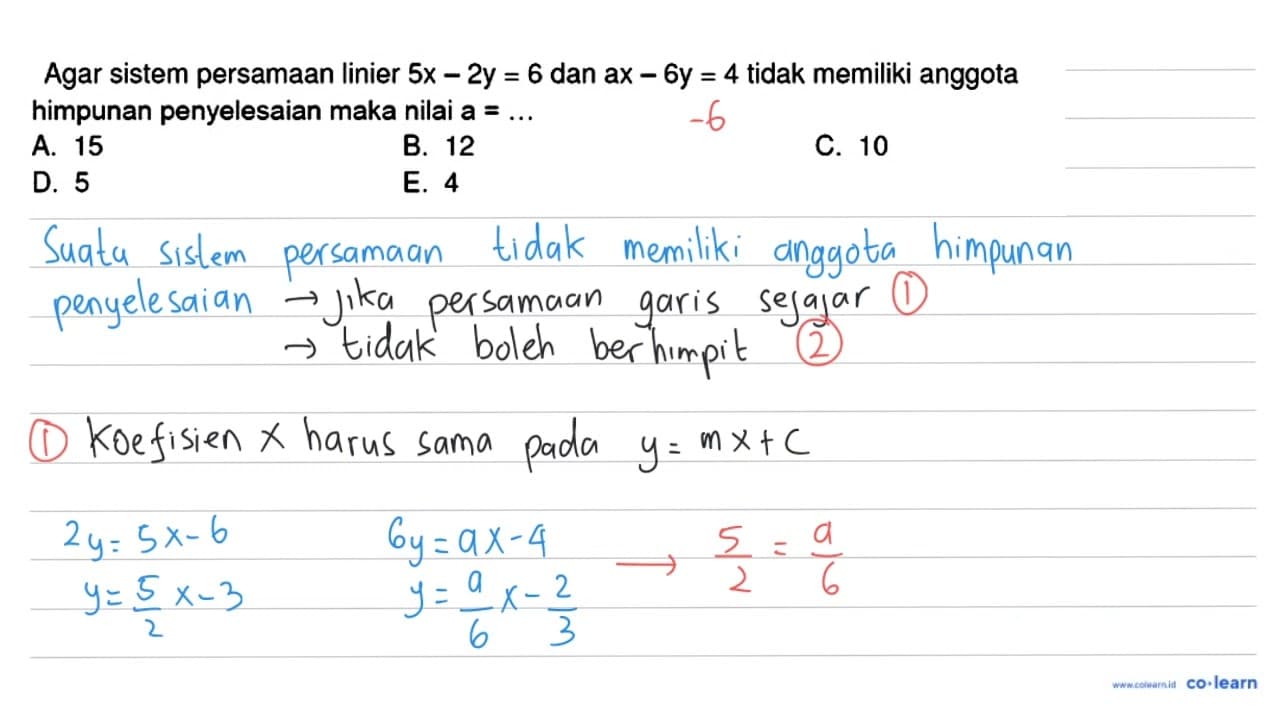 Agar sistem persamaan linier 5x – 2y = 6 dan ax – 6y = 4 tidak memiliki anggota
himpunan penyelesaian maka nilai a = ...
-6
A. 15 B. 12 C. 10
D. 5 E. 4
Suatu sistem persamaan tidak memiliki anggota himpunan
penyelesaian → jika persamaan garis sejajar ①
→ tidak boleh berhimpit ②
① Koefisien x harus sama pada y = mx + c
2y = 5x - 6 6y = ax - 4 → 5/2 = a/6
y = 5/2 x - 3 y = a/6 x - 2/3
www.colearn.id co·learn